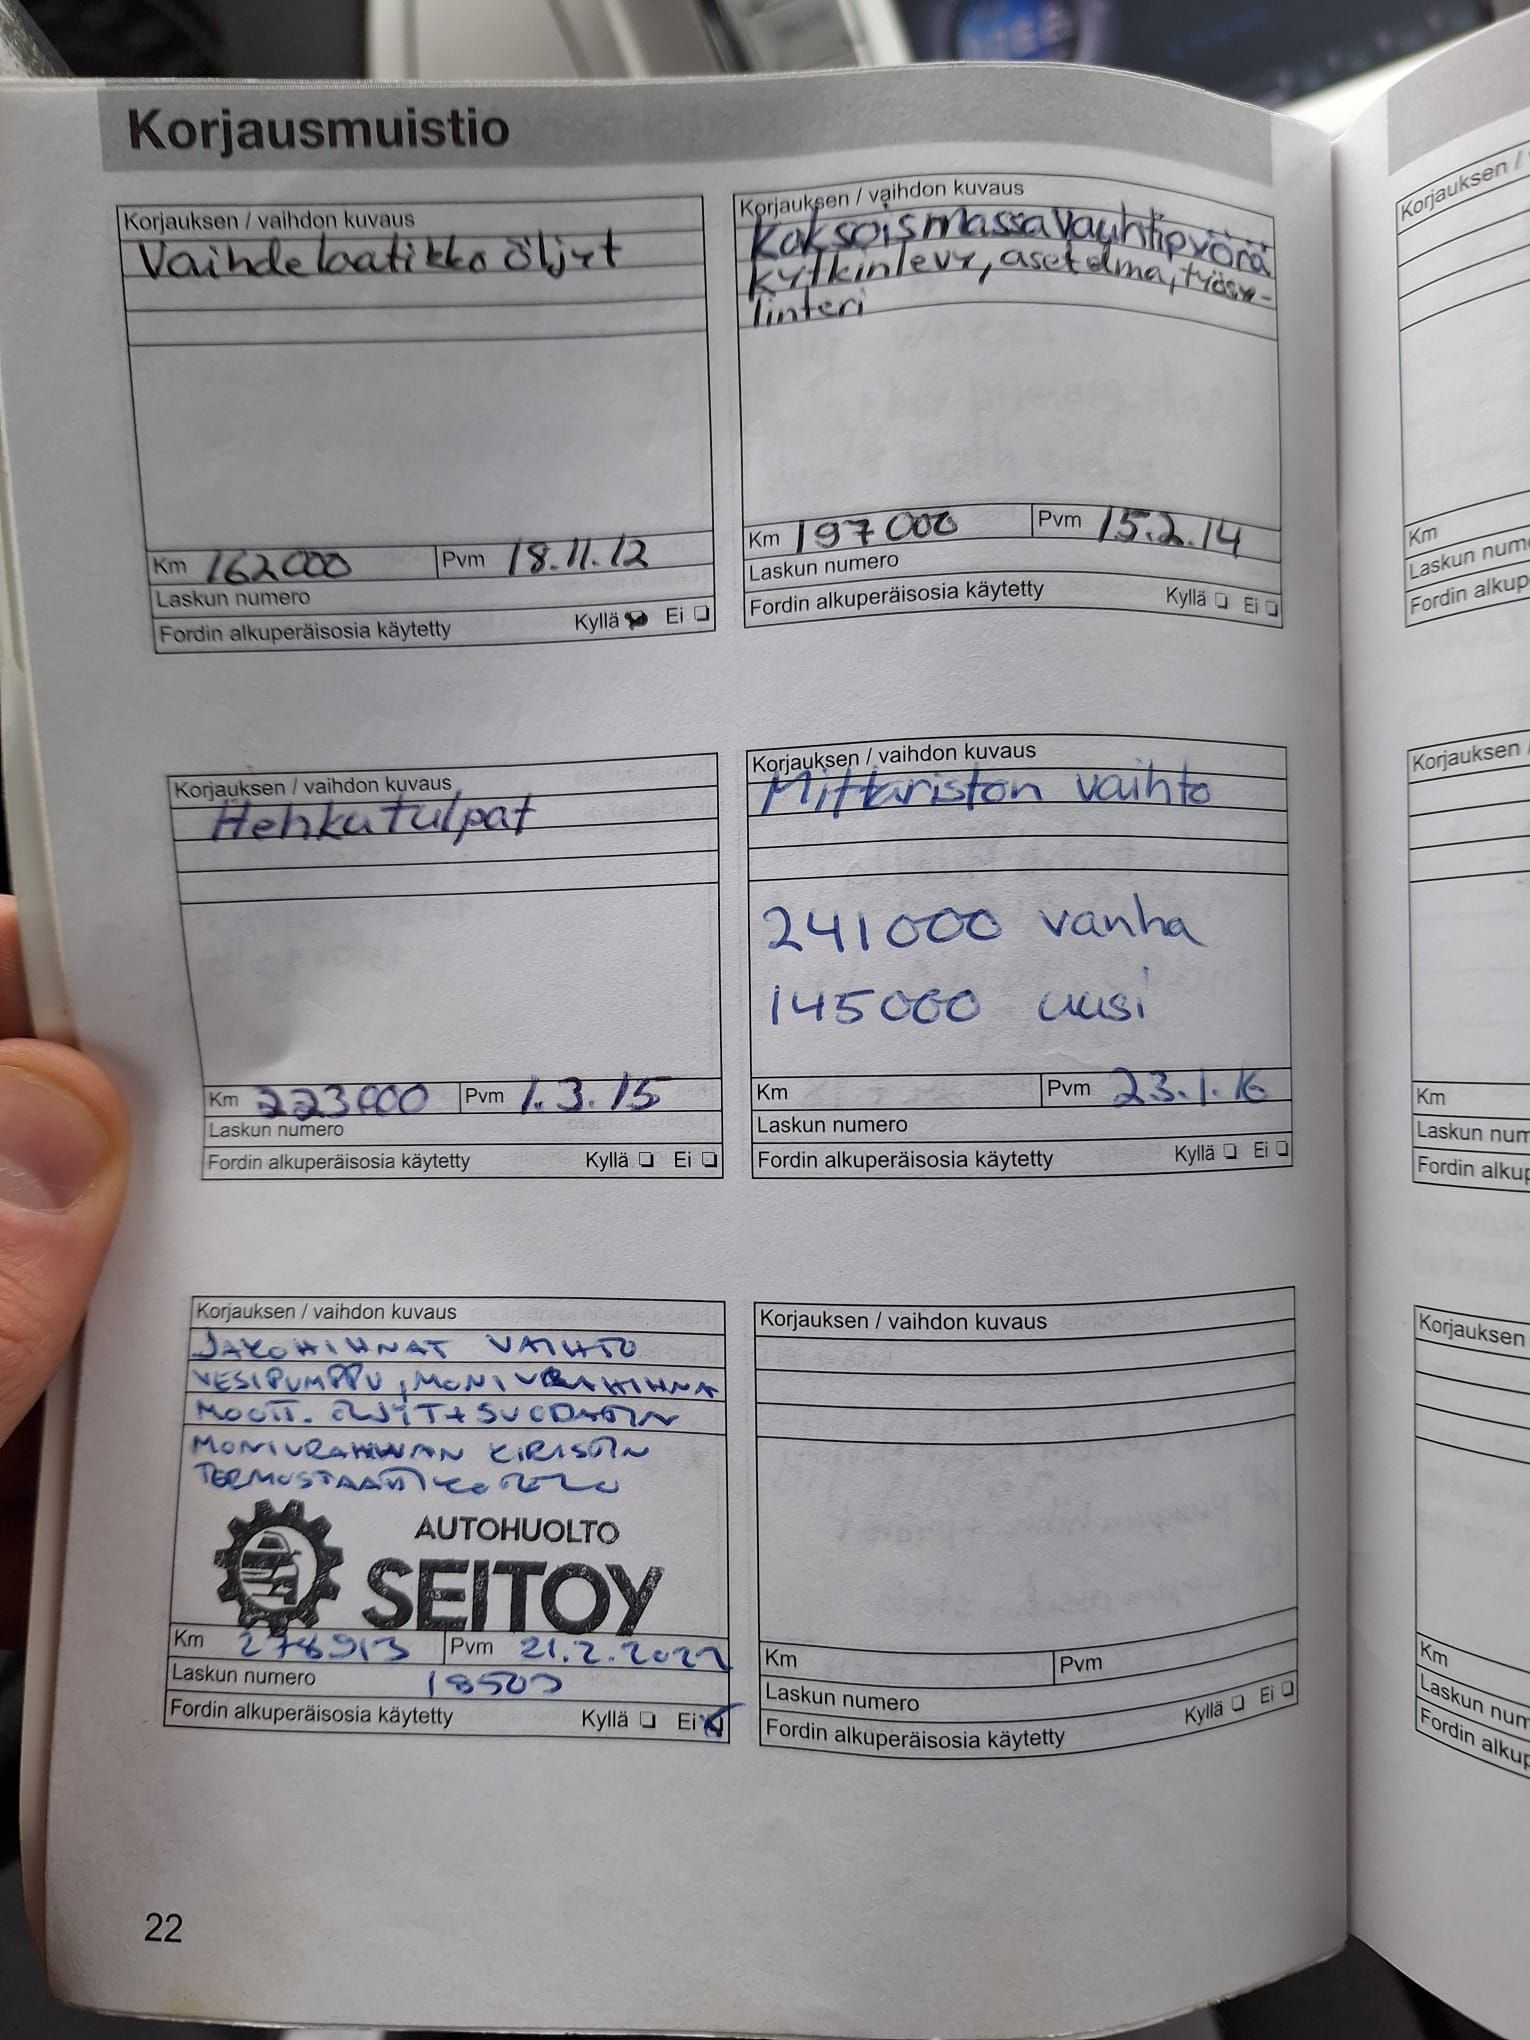 Korjausmuistio
Korjauksen / vaihdon kuvaus
Vaihdelaatikko öljyt
Km 162000 Pvm 18.11.12
Laskun numero
Fordin alkuperäisosia käytetty Kyllä Ei
Korjauksen / vaihdon kuvaus
Kaksoismassavauhtipyörä
kytkinlevy, asetelma, työsy-
linteri
Km 197000 Pvm 15.2.14
Laskun numero
Fordin alkuperäisosia käytetty Kyllä Ei
Korjauksen / vaihdon kuvaus
Hehkutulpat
Km 223000 Pvm 1.3.15
Laskun numero
Fordin alkuperäisosia käytetty Kyllä Ei
Korjauksen / vaihdon kuvaus
Mittariston vaihto
241000 vanha
145000 uusi
Km Pvm 23.1.16
Laskun numero
Fordin alkuperäisosia käytetty Kyllä Ei
Korjauksen / vaihdon kuvaus
JAKOHIHNAT VAIHTO
VESIPUMPPU, MONIURAHIHNA
MOOTT. ÖLJYT + SUODATIN
MONIURAHIHNAN KIRISTIN
AUTOHUOLTO
SEITOY
Km 278913 Pvm 21.2.2022
Laskun numero
Fordin alkuperäisosia käytetty Kyllä Ei
Korjauksen / vaihdon kuvaus
Km Pvm
Laskun numero
Fordin alkuperäisosia käytetty Kyllä Ei
22
Korjauksen /
Km
Laskun num
Fordin alkup
Korjauksen /
Km
Laskun num
Fordin alkup
Korjauksen
Km
Laskun num
Fordin alkup